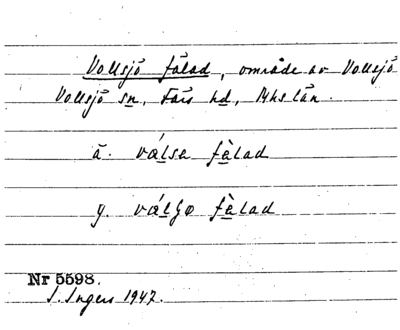 Vollsjö fälad, område av Vollsjö
Vollsjö sn, Färs hd, Mhs län.
ä. válsa fèlad
y. válʃø fèlad
Nr 5598.
I. Ingers 1947.